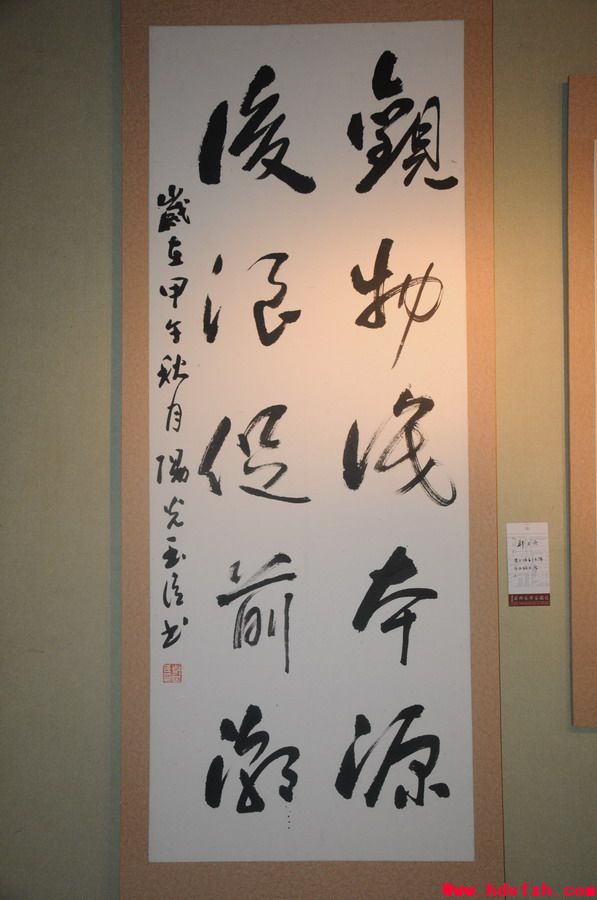 觀物識本源
後浪促前潮
歲在甲午秋月陽光玉信書
Www.hdsfxh.com